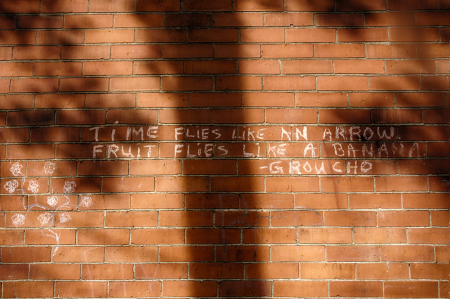 TIME FLIES LIKE AN ARROW.
FRUIT FLIES LIKE A BANANA
-GROUCHO